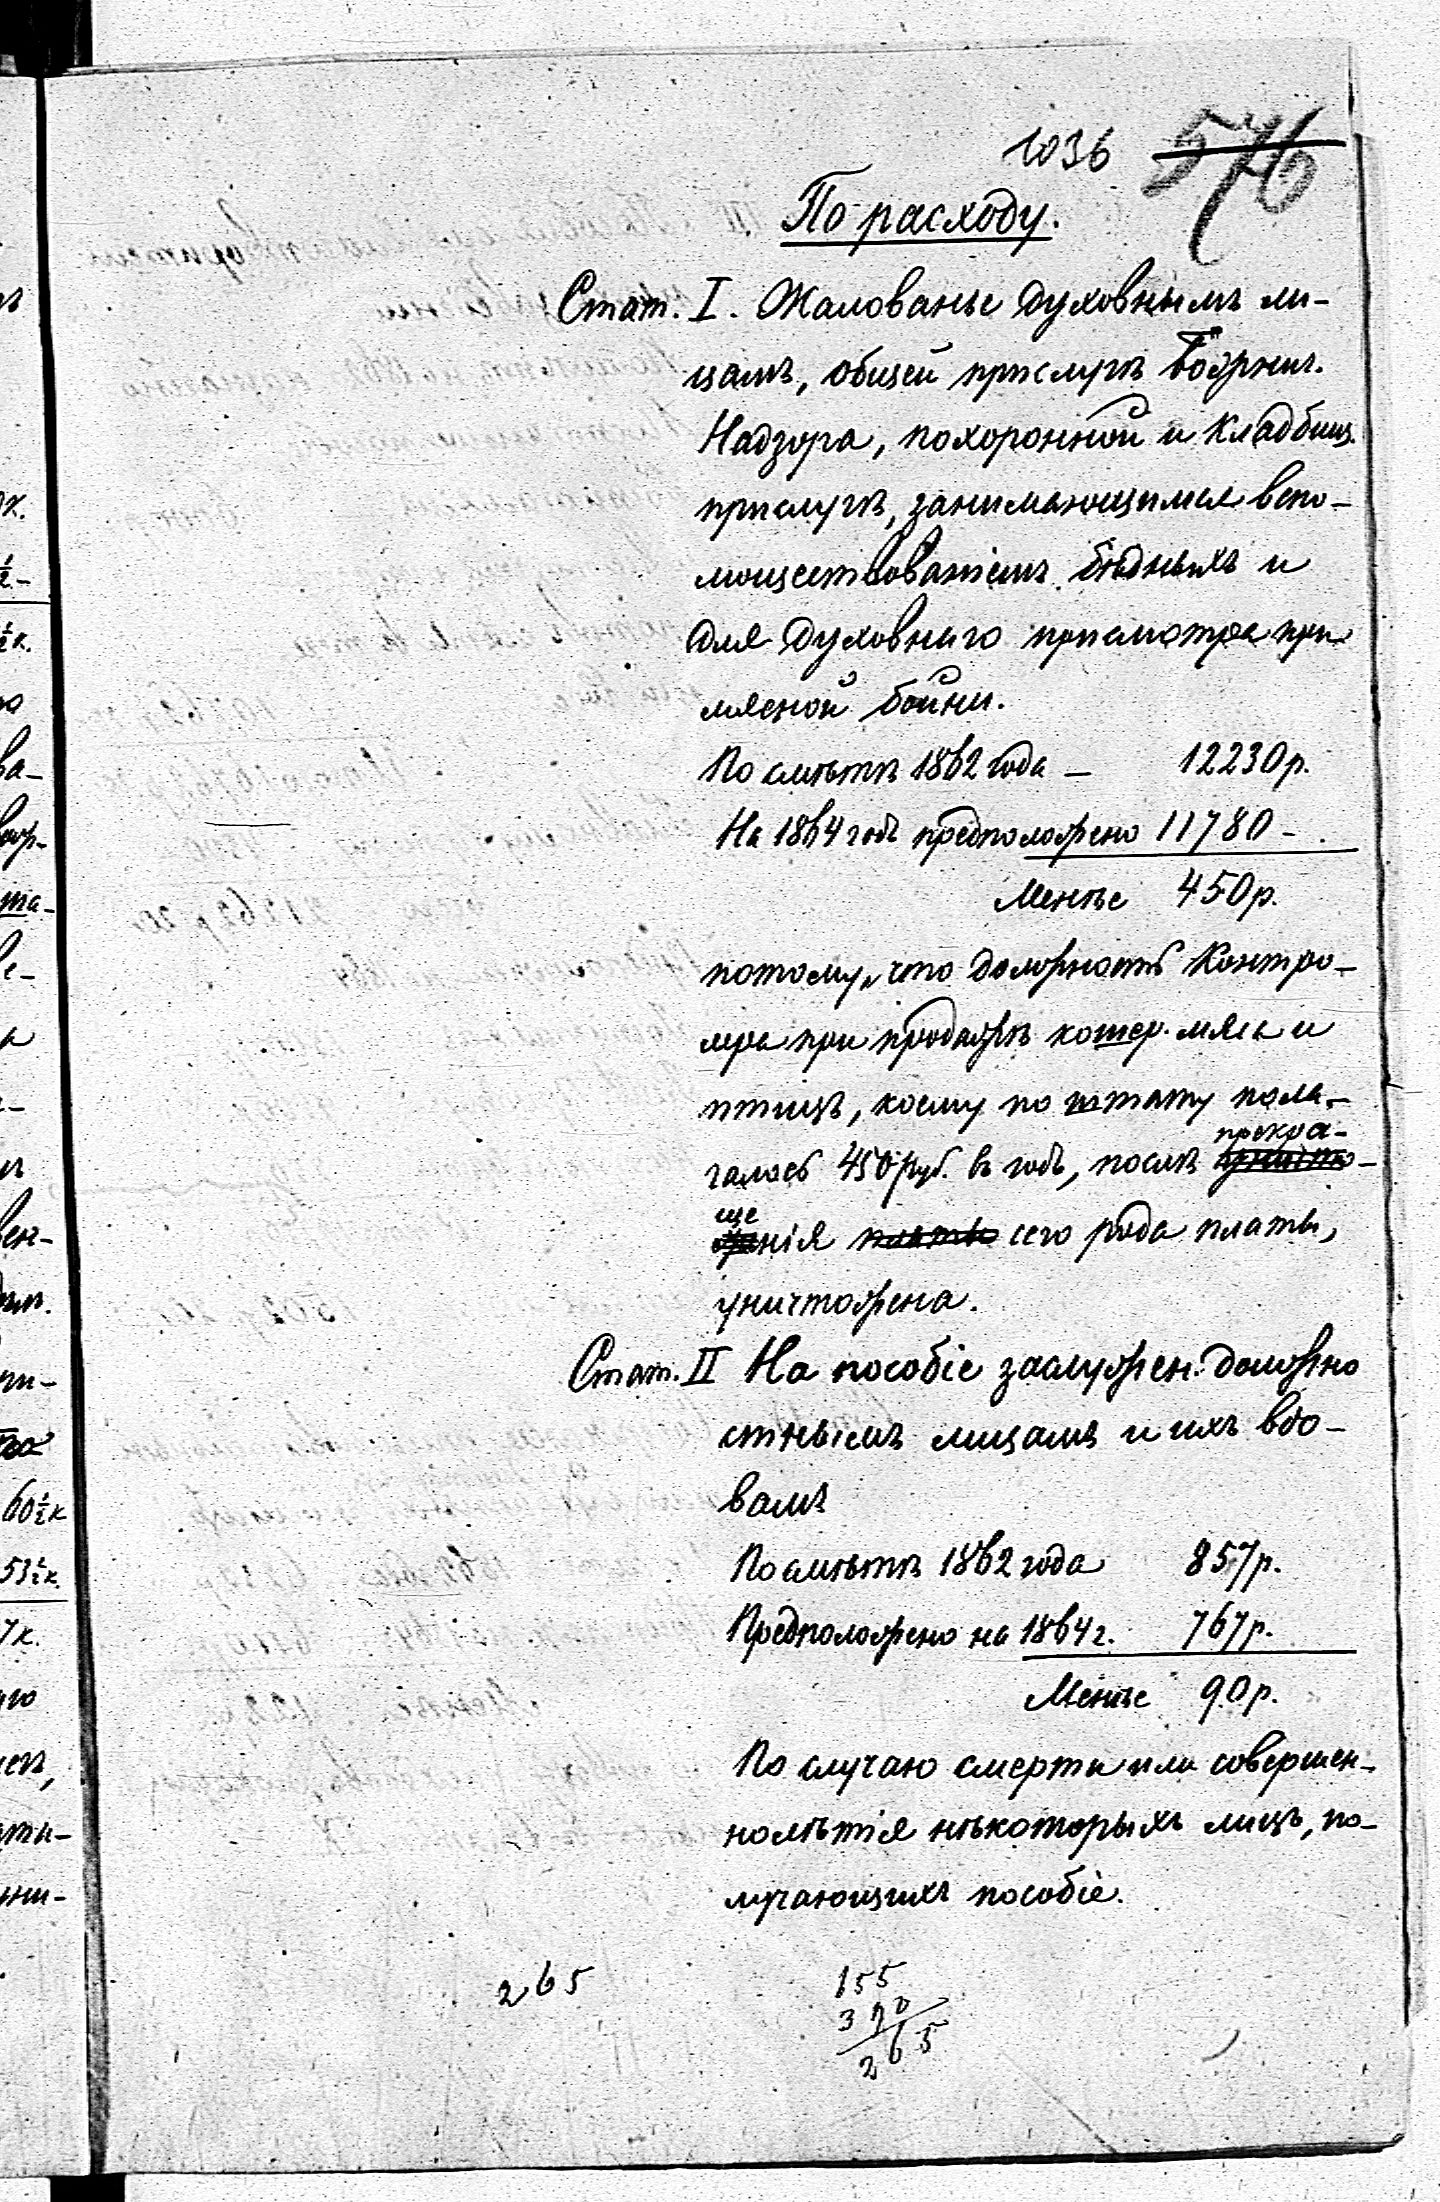 1036 576
По расходу.
Стат. I. Жалованье духовнымъ ли-
цамъ, общей прислугѣ Божнич.
Надзора, похоронной и кладбищ.
прислугѣ, занимающимся вспо-
моществованіемъ бѣдныхъ и
для духовнаго присмотра при
мясной бойни.
По смѣтѣ 1862 года — 12230 р.
На 1864 годъ предположено 11780 —.
Менѣе 450 р.
потому, что должность Контро-
лера при продажѣ кошер. мяса и
птицъ, коему по штату пола-
прекра-
галось 450 руб. въ годъ, послѣ уничто-
ще
женія платы сего рода платы,
уничтожена.
Стат. II На пособіе заслужен. должно
стнымъ лицамъ и ихъ вдо-
вамъ
По смѣтѣ 1862 года 857 р.
Предположено на 1864 г. 767 р.
Менѣе 90 р.
По случаю смерти или совершен-
нолѣтія нѣкоторыхъ лицъ, по-
лучающихъ пособіе.
265
155
265